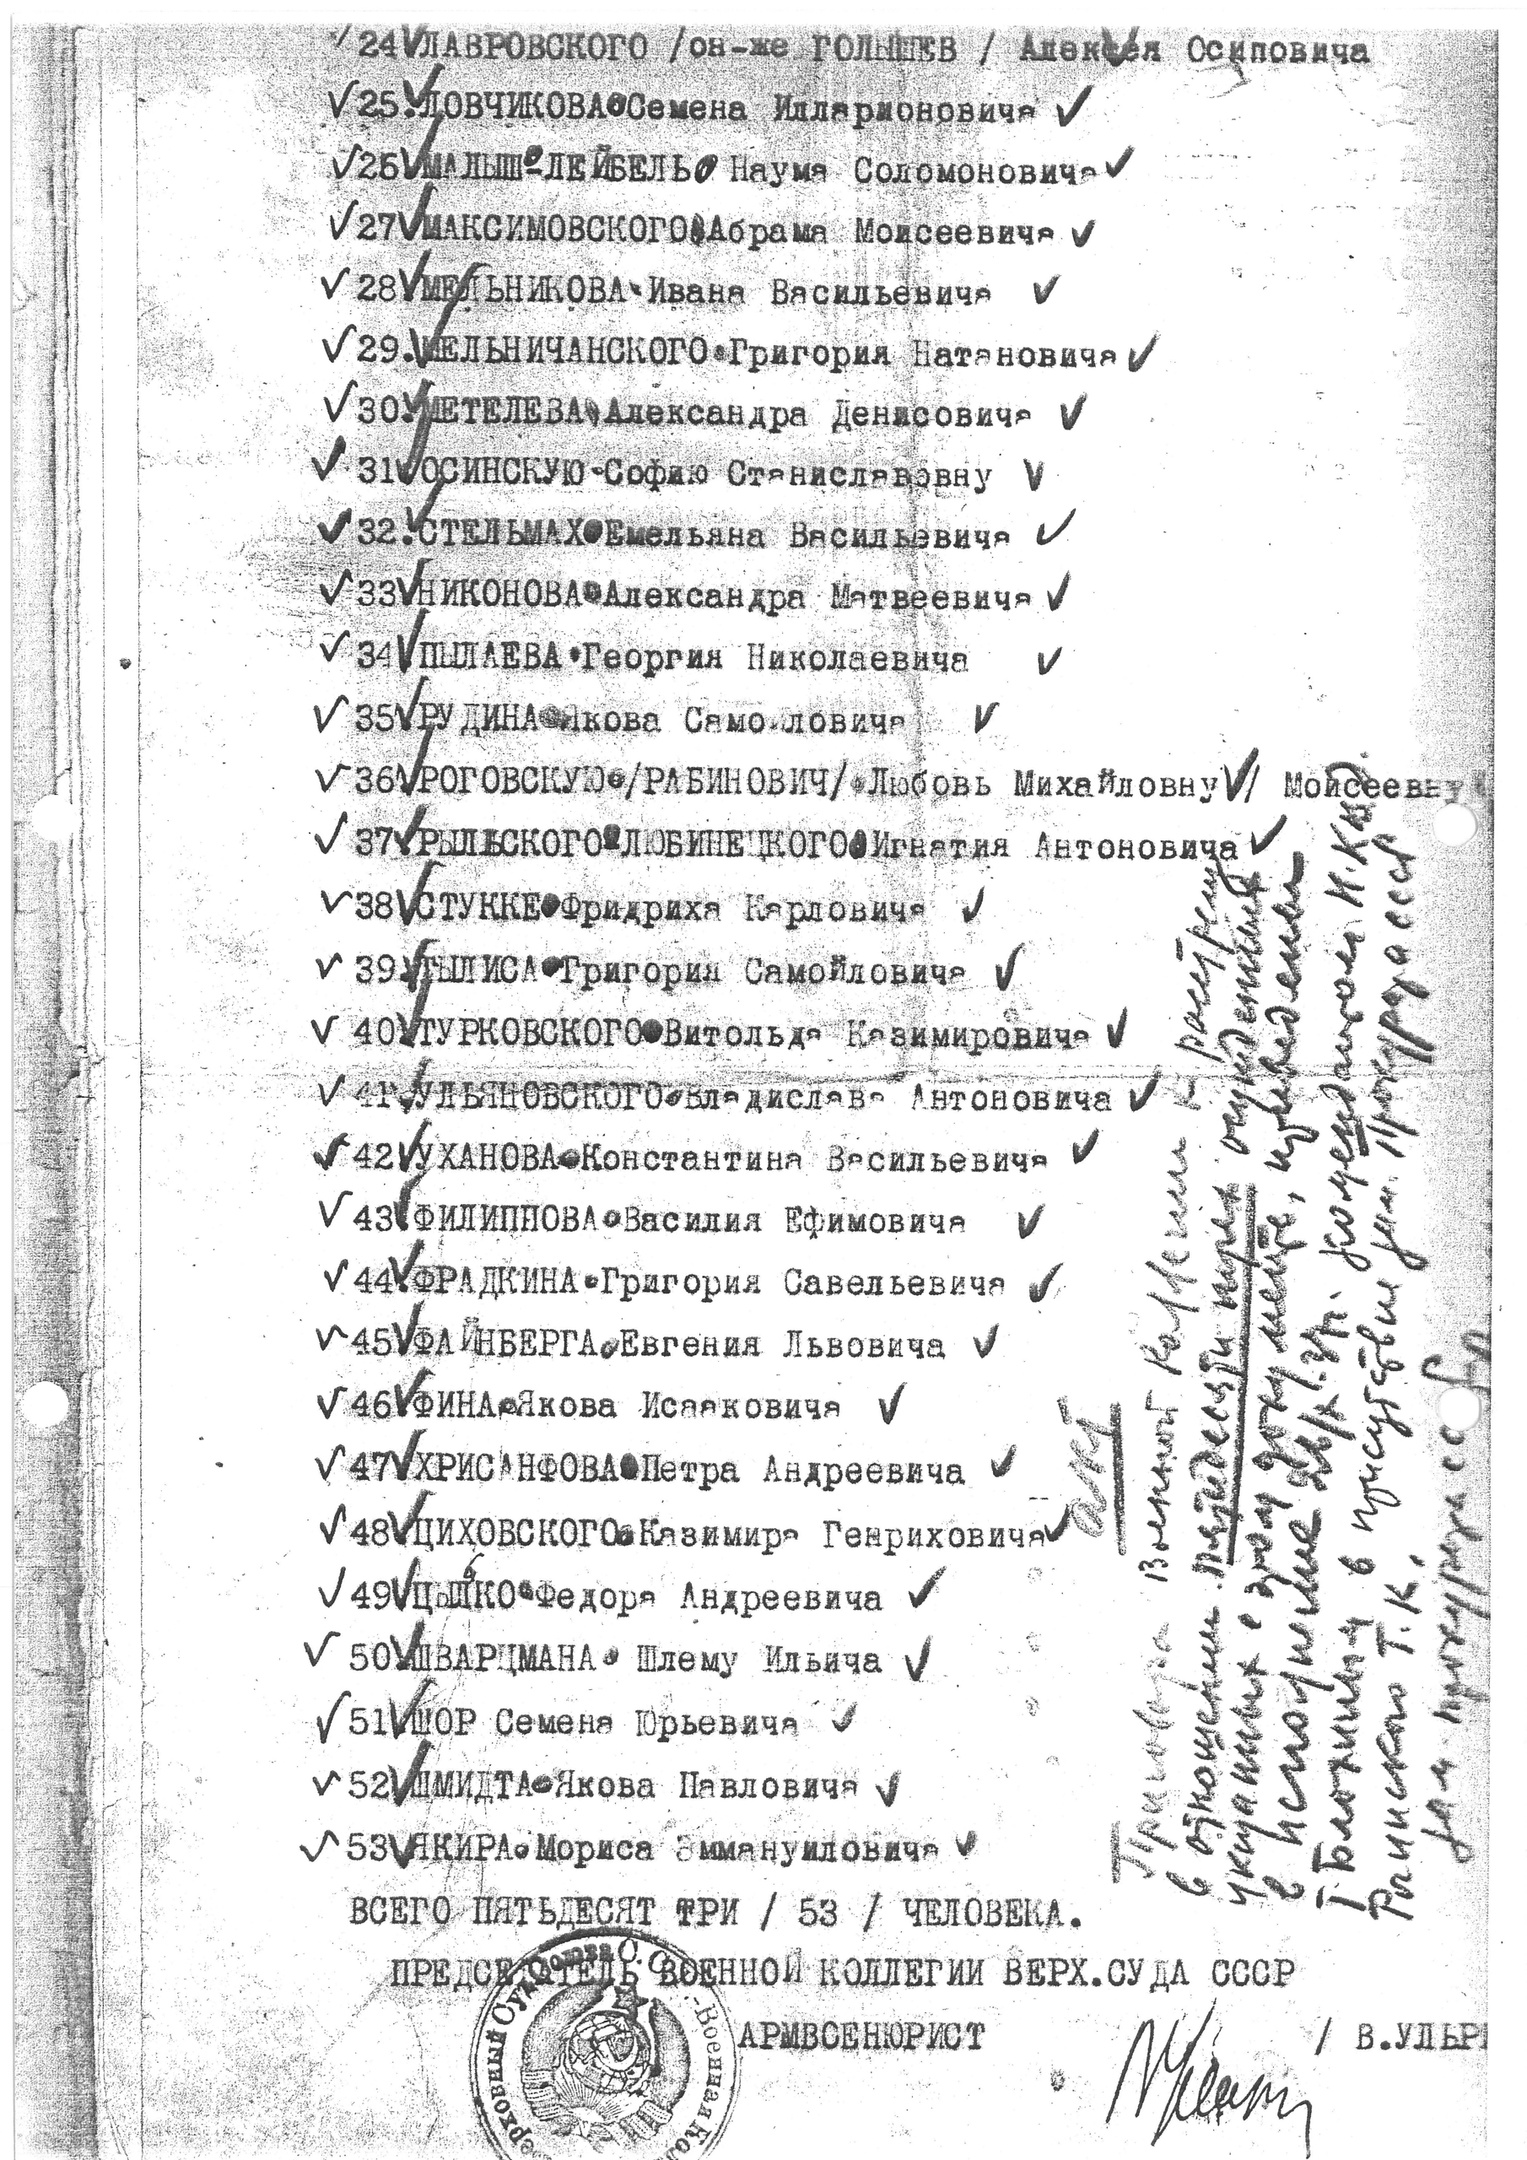 24 ЛАВРОВСКОГО /он-же ГОЛЫШЕВ / Алексея Осиповича
25. ЛОВЧИКОВА Семена Илларионовича
26 МАЛЫШ-ЛЕЙБЕЛЬ Наума Соломоновича
27 МАКСИМОВСКОГО Абрама Моисеевича
28 МЕЛЬНИКОВА Ивана Васильевича
29. МЕЛЬНИЧАНСКОГО Григория Натановича
30. МЕТЕЛЕВА Александра Денисовича
31 ОСИНСКУЮ Софию Станиславовну
32. СТЕЛЬМАХ Емельяна Васильевича
33 НИКОНОВА Александра Матвеевича
34 ПЫЛАЕВА Георгия Николаевича
35 РУДИНА Якова Самойловича
36 РОГОВСКУЮ /РАБИНОВИЧ/ Любовь Михайловну / Моисеевну
37 РЫЛЬСКОГО ЛЮБИНЕЦКОГО Игнатия Антоновича
38 СТУККЕ Фридриха Карловича
39 ТЫЛИСА Григория Самойловича
40 ТУРКОВСКОГО Витольда Казимировича
41 УЛЬЯНОВСКОГО Владислава Антоновича
42 УХАНОВА Константина Васильевича
43 ФИЛИППОВА Василия Ефимовича
44. ФРАДКИНА Григория Савельевича
45 ФАЙНБЕРГА Евгения Львовича
46 ФИНА Якова Исааковича
47 ХРИСАНФОВА Петра Андреевича
48 ЦИХОВСКОГО Казимира Генриховича
49 ЦЫБКО Федора Андреевича
50 ШВАРЦМАНА Шлему Ильича
51 ШОР Семена Юрьевича
52 ШМИДТА Якова Павловича
53 ЯКИРА Мориса Эммануиловича
ВСЕГО ПЯТЬДЕСЯТ ТРИ / 53 / ЧЕЛОВЕКА.
ПРЕДСЕДАТЕЛЬ ВОЕННОЙ КОЛЛЕГИИ ВЕРХ.СУДА СССР
АРМВОЕНЮРИСТ / В.УЛЬР
Верховный Суд Союза С.С.Р.-Военная Кол
Акт
Приговора Военной Коллегии к расстрелу
в отношении пятидесяти трех осужденных
указанных в этом документе, приведены
в исполнение комендантом НКВД
т. Блохиным в присутствии зам. прокурора СССР
Рогинского Т.К.
Зам. прокурора СССР